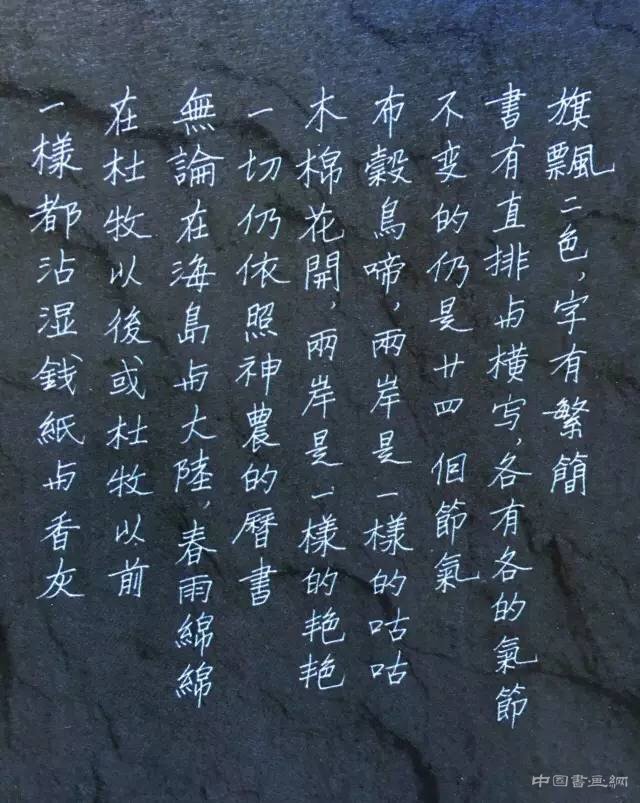 旗飄二色，字有繁簡
書有直排与橫写，各有各的氣節
不变的仍是廿四個節氣
布穀鳥啼，兩岸是一樣的咕咕
木棉花開，兩岸是一樣的艳艳
一切仍依照神農的曆書
無論在海島与大陸，春雨綿綿
在杜牧以後或杜牧以前
一樣都沾湿銭紙与香灰
中国書画網